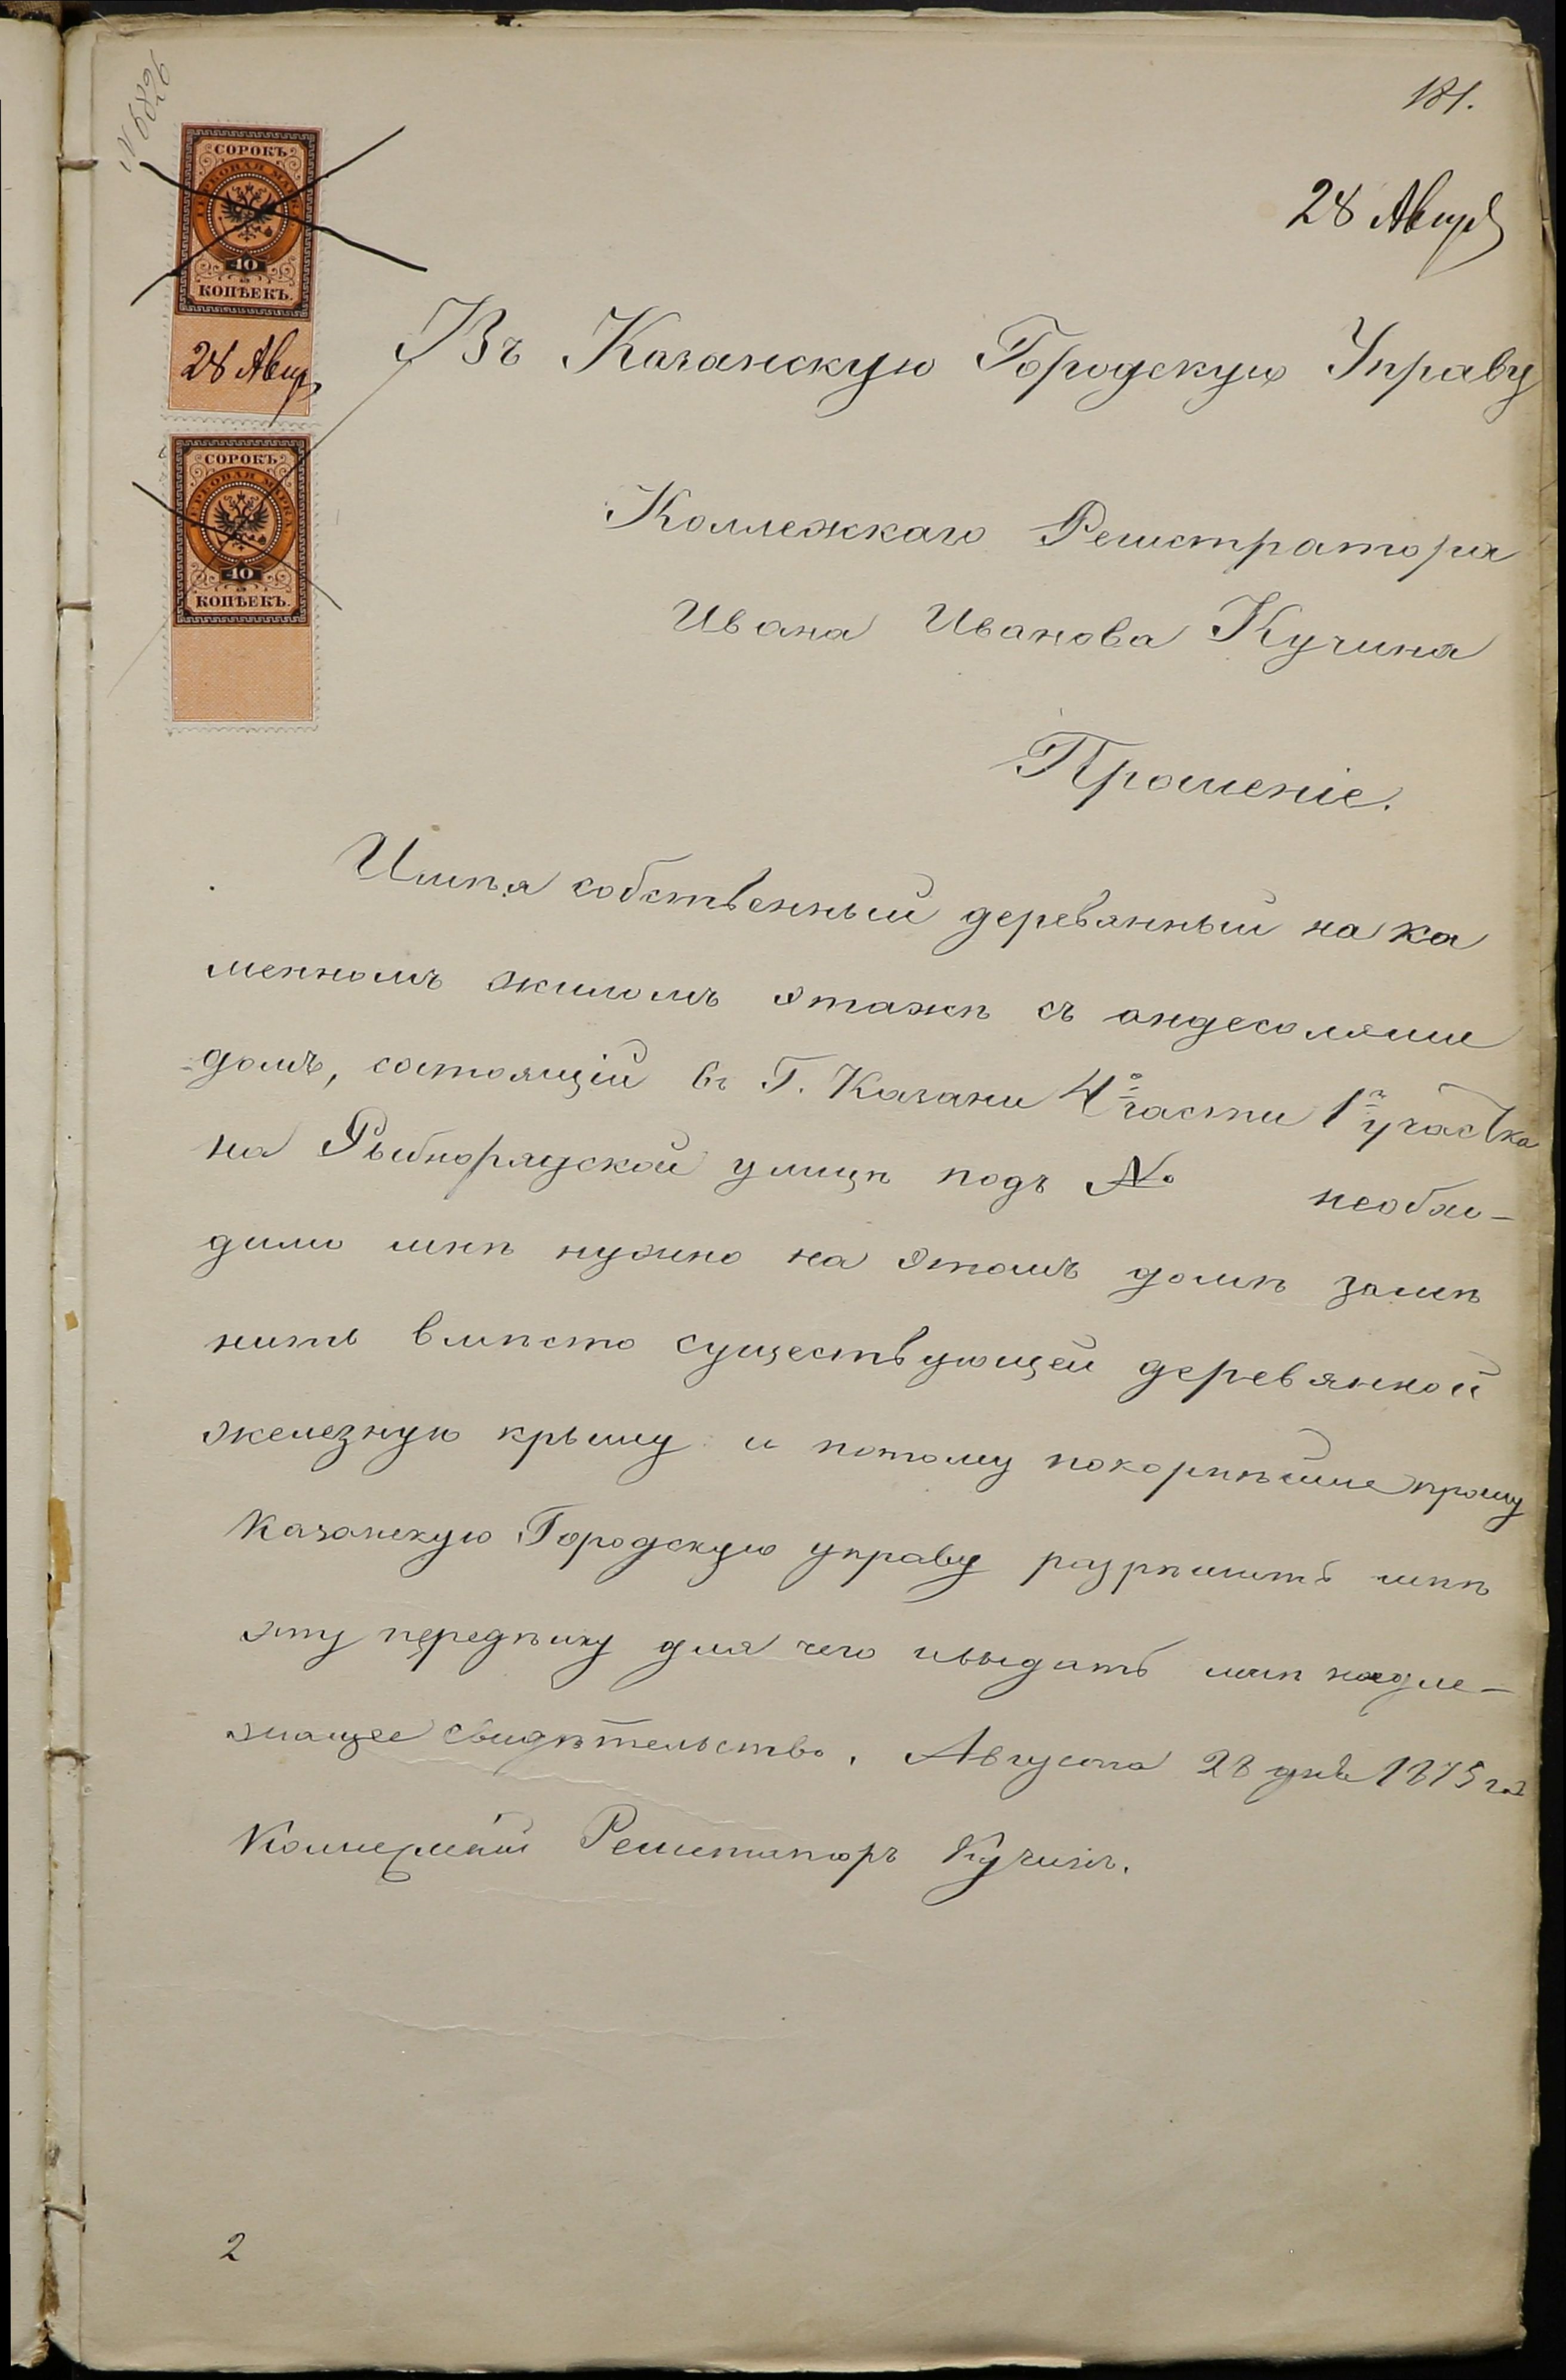 181.
28 Авгус
СОРОКЪ
ГЕРБОВАЯ МАРКА
40
КОПѢЕКЪ.
28 Авгус
СОРОКЪ
ГЕРБОВАЯ МАРКА
40
КОПѢЕКЪ.
Въ Казанскую Городскую Управу
Коллежскаго Регистратора
Ивана Иванова Кучина
Прошеніе.
Имѣя собственный деревянный на ка
менномъ жиломъ этажѣ съ андесолями
домъ, состоящій въ Г. Казани 4й части 1го участка
на Рыбнорядской улицѣ подъ № необхо-
димо мнѣ нужно на этомъ домѣ замѣ
нить вмѣсто существующей деревянной
железную крышу и потому покорнѣйше прошу
Казанскую Городскую управу разрѣшить мнѣ
эту передѣлку для чего и выдать мнѣ надле-
жащее свидѣтельство. Августа 28 дня 1875 год
Коллежскій Регистраторъ Кучинъ.
2